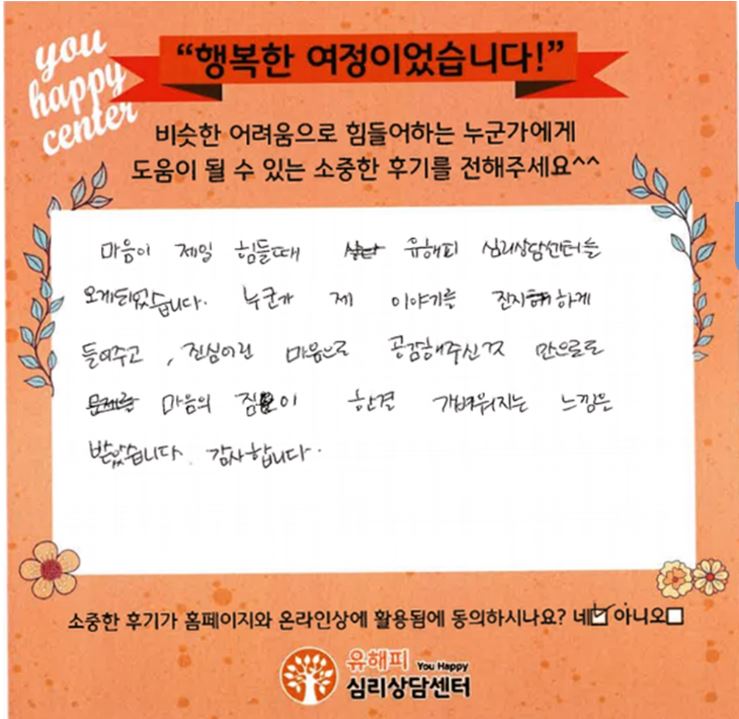 you
happy
center
“행복한 여정이었습니다!”
비슷한 어려움으로 힘들어하는 누군가에게
도움이 될 수 있는 소중한 후기를 전해주세요^^
마음이 제일 힘들때 유해피 심리상담센터를
오게되었습니다. 누군가 제 이야기를 진지하게
들어주고, 진심어린 마음으로 공감해주신것 만으로도
마음의 짐이 한결 가벼워지는 느낌을
받았습니다. 감사합니다.
소중한 후기가 홈페이지와 온라인상에 활용됨에 동의하시나요? 네☑ 아니오☐
유해피 You Happy
심리상담센터